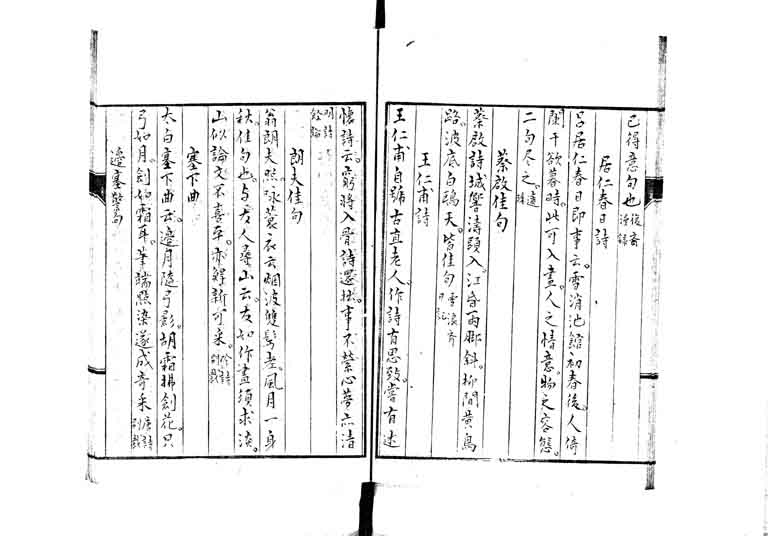 已得意句也後齋漫錄
居仁春日詩
呂居仁春日即事云雪消池館初春後人倚
闌干欲暮時此可入畫人之情意物之容態
二句尽之
蔡啟佳句
蔡啟詩城響濤頭入江昏雨腳斜柳間黃鳥
路波底白鷗天皆佳句雪浪齋日記
王仁甫詩
王仁甫自號古直老人作詩有思致嘗有述
懷詩云窮將入骨詩還拙事不縈心夢亦清
明詩
朗夫佳句
翁朗夫照詠蓑衣云烟波雙鬢老風月一身
秋佳句也与友人尋山云友如作畫須求淡
山似論文不喜平亦鮮新可采
塞下曲
太白塞下曲云邊月隨弓影胡霜拂劍花只
弓如月劍如霜耳筆端點染遂成奇采唐詩別裁
邊塞警句